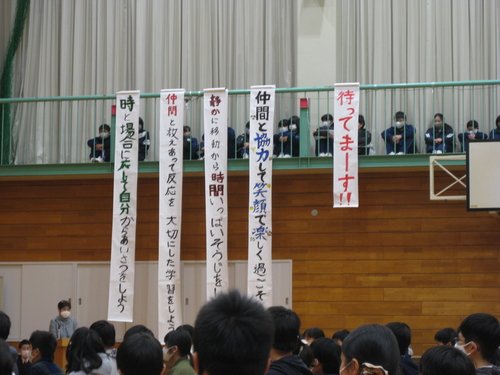 時と場合に応じて自分からあいさつをしよう
仲間と教えあって反応を大切にした学習をしよう
静かに移動から時間いっぱいそうじをし
仲間と協力して笑顔で楽しく過ごそ
待ってまーす!!